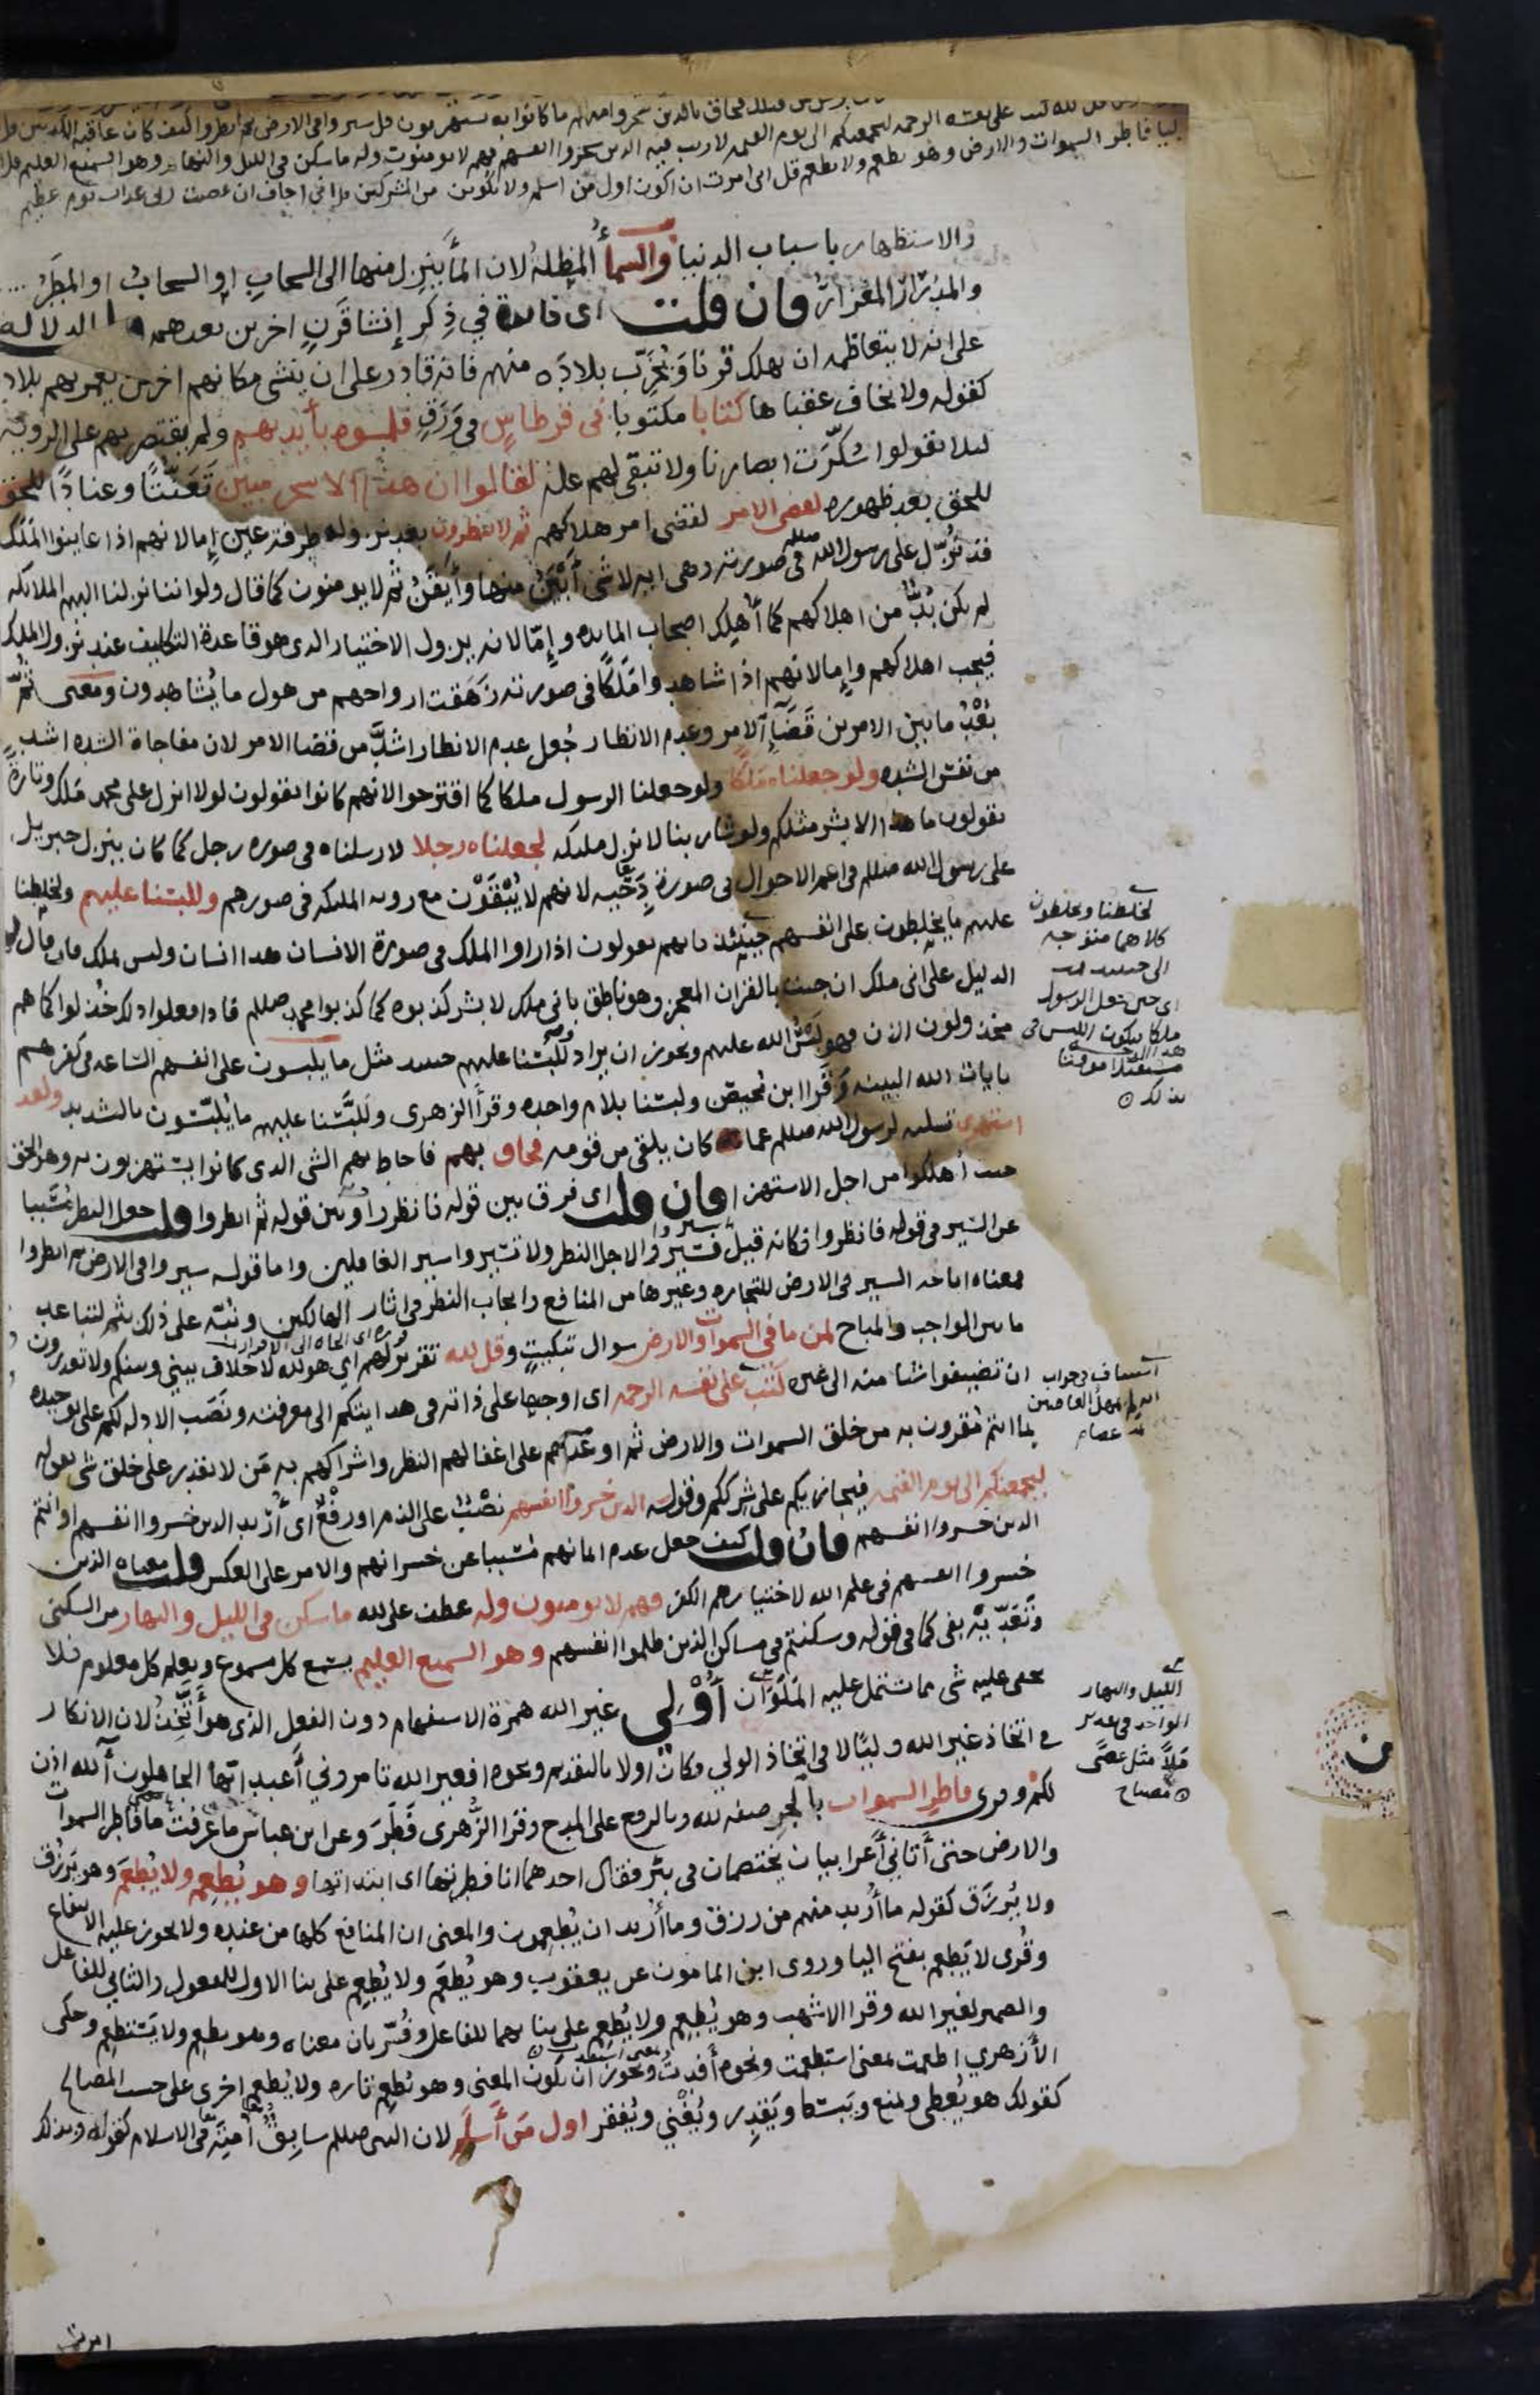 قل لله كتب على نفسه الرحمة ليجمعنكم الى يوم القيمة لا ريب فيه الذين خسروا انفسهم فهم لا يومنون وله ما سكن في الليل والنهار وهو السميع العليم قل
وليا فاطر السموات والارض وهو يطعم ولا يطعم قل انى امرت ان اكون اول من اسلم ولا تكونن من المشركين قل اني اخاف ان عصيت ربى عذاب يوم عظيم
والاستظهار باسباب الدنيا والسمأ المظلة لان المأ ينزل منها الى السحاب او السحاب او المطر
والمدرار المغزار فان قلت اى فايدة في ذكر إنشا قرن اخرين بعدهم الدلالة
على انه لا يتعاظمه ان يهلك قرنا ويخرب بلاده منهم فانه قادر على ان ينشى مكانهم اخرين يعمر بهم بلاده
كقوله ولا يخاف عقباها كتابا مكتوبا فى قرطاس فى ورق فلمسوه بأيديهم ولم يقتصر بهم على الروية
ليلا يقولوا سكرت ابصارنا ولا تبقى لهم علة لقالوا ان هذا الا سحر مبين تعنتا وعنادا للحق
للحق بعد ظهوره لقضى الامر لقضى امر هلاكهم ثم لا ينظرون بعد نزوله طرفة عين إما لانهم اذا عاينوا الملك
قد نزل على رسول الله صللم فى صورته وهى اية لا شى أبين منها وأيقن ثم لا يومنون كما قال ولو اننا نزلنا اليهم الملائكة
لم يكن بد من اهلاكهم كما أهلك اصحاب المايدة وإما لانه يزول الاختيار الذى هو قاعدة التكليف عند نزول الملك
فيجب اهلاكهم وإما لانهم اذا شاهدوا ملكا فى صورته زهقت ارواحهم من هول ما يشاهدون ومعنى ثم
بعد ما بين الامرين قضآ الامر وعدم الانظار جعل عدم الانظار اشد من قضا الامر لان مفاجاة الشدة اشد
من نفس الشدة ولو جعلناه ملكا ولو جعلنا الرسول ملكا كما اقترحوا لانهم كانوا يقولون لولا انزل على محمد ملك وتارة
يقولون ما هذا الا بشر مثلكم ولو شاء ربنا لانزل مليكة لجعلناه رجلا لارسلناه فى صورة رجل كما كان ينزل جبريل
على رسول الله صللم فى اعم الاحوال فى صورة دحية لانهم لا يبقون مع روية المليكة فى صورهم وللبسنا عليهم ولخلطنا
عليهم ما يخلطون على انفسهم حينئذ فانهم يقولون اذا راوا الملك فى صورة الانسان هذا انسان وليس بملك فان قال لهم
الدليل على أنى ملك ان جيت بالقران المعجز وهو ناطق بانى ملك لا بشر كذبوه كما كذبوا محمد صللم فاذا فعلوا ذلك خذلوا كما هم
مخذولون الان فهو لبس الله عليهم ويجوز ان يراد وللبسنا عليهم حينئذ مثل ما يلبسون على انفسهم الساعة فى كفرهم
بايات الله البينة وقرا ابن محيصن ولبسنا بلام واحدة وقرأ الزهرى وللبسنا عليهم ما يلبسون بالتشديد ولقد
استهزى تسلية لرسول الله صللم عما كان يلقى من قومه فحاق بهم فاحاط بهم الشى الذى كانوا يستهزيون به وهو الحق
حيث أهلكوا من اجل الاستهزا فان قلت اى فرق بين قوله فانظروا وبين قوله ثم انظروا قلت جعل النظر مسببا
عن السير فى قوله فانظروا فكانه قيل سيروا لاجل النظر ولا تسيروا سير الغافلين واما قوله سيروا فى الارض ثم انظروا
فمعناه اباحة السير فى الارض للتجارة وغيرها من المنافع وايجاب النظر فى اثار الهالكين ونبه على ذلك بثم لتباعد
ما بين الواجب والمباح لمن ما فى السموات والارض سوال تبكيت وقل لله تقرير لهم اى هو لله لا خلاف بينى وبينكم ولا تقدرون
ان تضيفوا شيا منه الى غيره كتب على نفسه الرحمة اى اوجبها على ذاته فى هدايتكم الى معرفته ونصب الادلة لكم على توحيده
بما انتم مقرون به من خلق السموات والارض ثم اوعدهم على اغفالهم النظر واشراكهم به من لا يقدر على خلق شى بقوله
ليجمعنكم الى يوم القيمة فيجازيكم على شرككم وقوله الذين خسروا انفسهم نصب على الذم او رفع اى أريد الذين خسروا انفسهم او انتم
الذين خسروا انفسهم فان قلت كيف جعل عدم ايمانهم مسببا عن خسرانهم والامر على العكس قلت معناه الذين
خسروا انفسهم فى علم الله لاختيارهم الكفر فهم لا يومنون وله عطف على لله ما سكن فى الليل والنهار من السكنى
وتعديه بفى كما فى قوله وسكنتم فى مساكن الذين ظلموا انفسهم وهو السميع العليم يسمع كل مسموع ويعلم كل معلوم فلا
يخفى عليه شى مما يشتمل عليه الملوان أولى غير الله همزة الاستفهام دون الفعل الذى هو أتخذ لان الانكار
فى اتخاذ غير الله وليا لا فى اتخاذ الولي فكان اولا بالتقديم ونحوه افغير الله تامروني أعبد ايها الجاهلون آلله اذن
لكم وقرى فاطر السموات بالجر صفة لله وبالرفع على المدح وقرا الزهرى فطر وعن ابن عباس ما عرفت ما فاطر السموات
والارض حتى أتاني أعرابيان يختصمان فى بئر فقال احدهما انا فطرتها اى ابتداتها وهو يطعم ولا يطعم وهو يرزق
ولا يرزق كقوله ما أريد منهم من رزق وما أريد ان يطعمون والمعنى ان المنافع كلها من عنده ولا يجوز عليه الانتفاع
وقرى لا يطعم بفتح اليا وروى ابن المامون عن يعقوب وهو يطعم ولا يطعم على بنا الاول للمفعول والثانى للفاعل
والضمير لغير الله وقرا الاشهب وهو يطعم ولا يطعم على بنايهما للفاعل وفسر بان معناه وهو يطعم ولا يستطعم وحكى
الأزهري اطعمت بمعنى استطعمت ونحوه أفدت ويجوز ان يكون المعنى وهو يطعم تارة ولا يطعم اخرى على حسب المصالح
كقولك هو يعطى ويمنع ويبسط ويقدر ويغني ويفقر اول من أسلم لان النبى صللم سابق أمته فى الاسلام كقوله وبذلك
امرت
لخلطنا ويخلطون
كلاهما متوجه
الى حينئذ
اى حين جعل الرسول
ملكا فيكون اللبس فى
بذلك
الليل والنهار
الواحد فى تقدير
ملا مثل عصى
مصباح